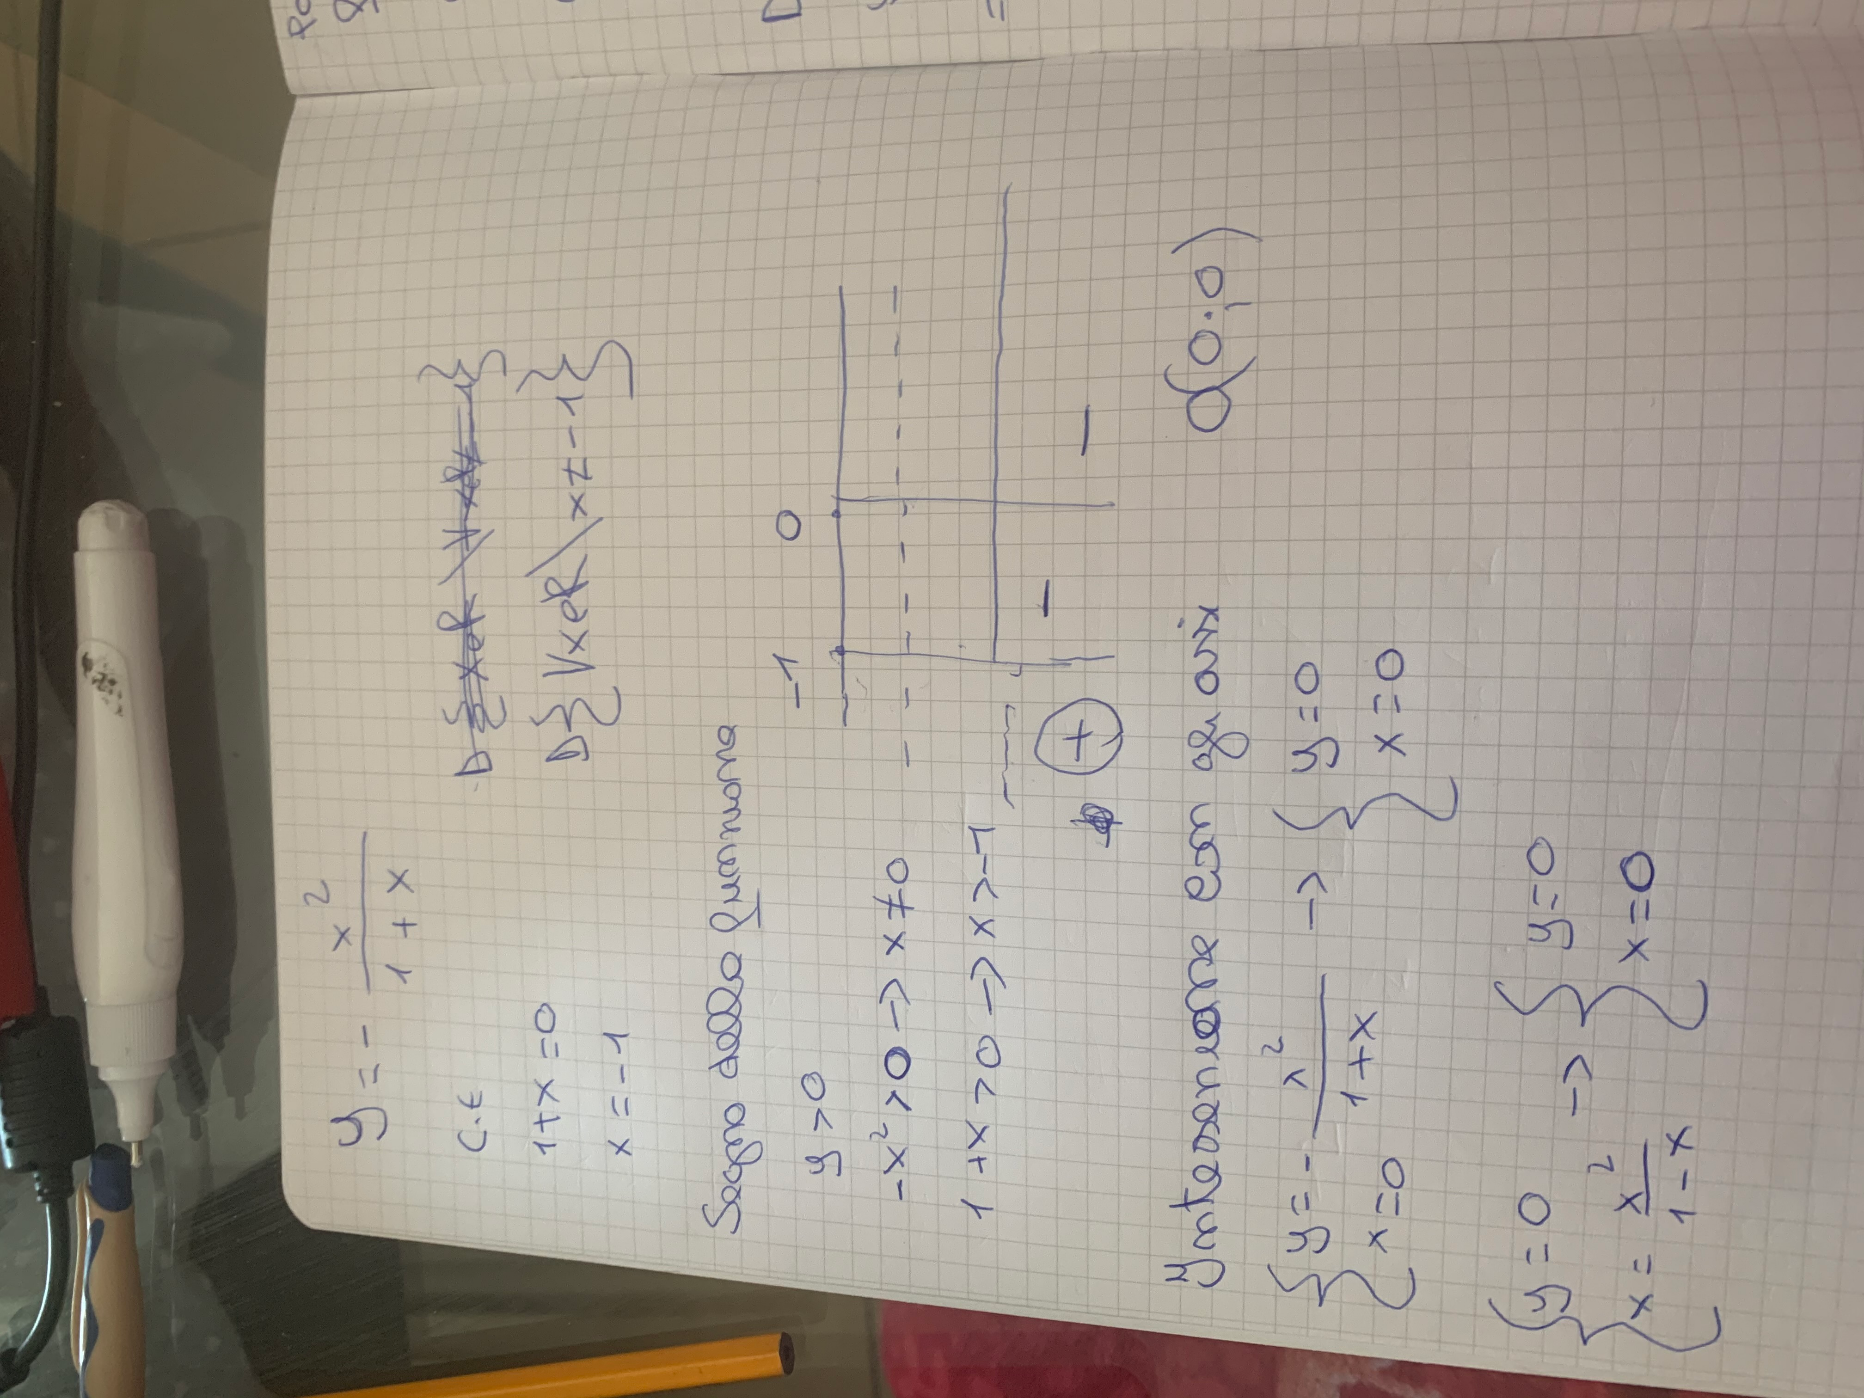 y = - x² / 1 + x
C.E
1 + x = 0
x = -1
D { ∀xεR \ x ≠ -1 }
Segno della funzione
y > 0
-x² > 0 -> x ≠ 0
1 + x > 0 -> x > -1
-1 0
+ - -
Intersezione con gli assi
{ y = - x² / 1 + x -> { y = 0
x = 0 x = 0
O(0;0)
{ y = 0 -> { y = 0
x = x² / 1 - x x = 0